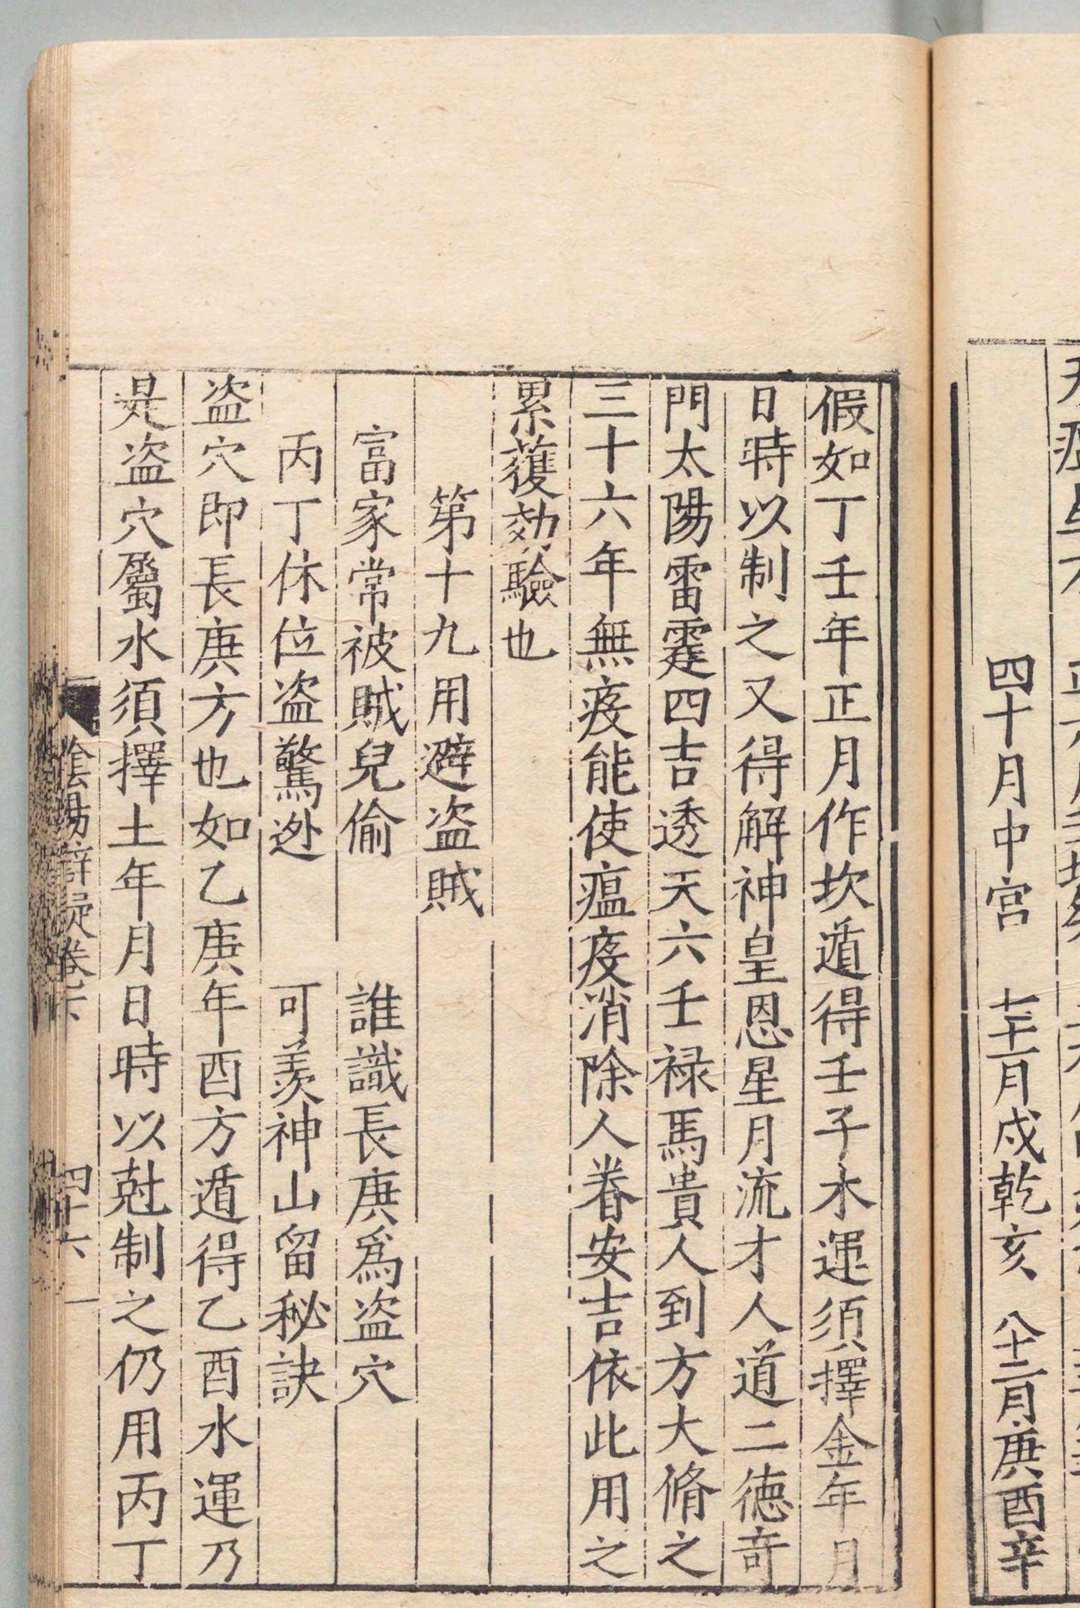 四十月中宮　七十一月戌乾亥　八十二月庚酉辛
假如丁壬年正月作坎遁得壬子水運須擇金年月
日時以制之又得解神皇恩星月流才人道二德奇
門太陽雷霆四吉透天六壬禄馬貴人到方大脩之
三十六年無疫能使瘟疫消除人眷安吉依此用之
累蒦効驗也
第十九用避盗賊
富家常被賊兒偷　誰識長庚爲盗穴
丙丁休位盗驚迯　可羡神山留秘訣
盗穴即長庚方也如乙庚年酉方遁得乙酉水運乃
是盗穴屬水須擇土年月日時以尅制之仍用丙丁
陰陽辯疑卷下　四十六